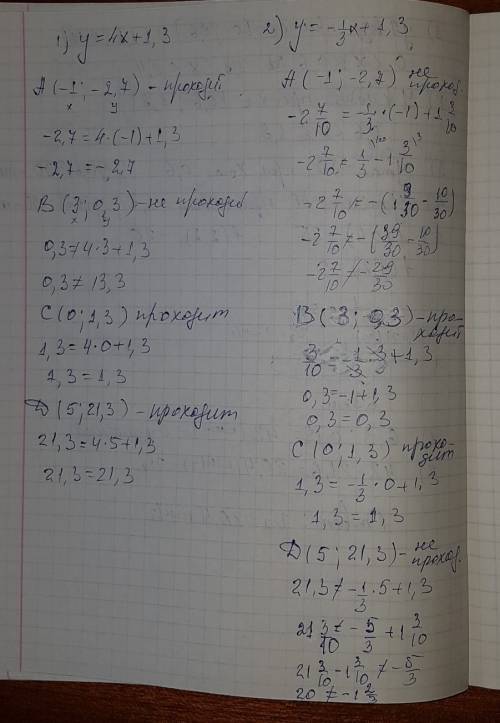 1) y=4x+1,3
A(-1; -2,7) - проходит
x y
-2,7=4·(-1)+1,3
-2,7=-2,7
B(3; 0,3) - не проходит
x y
0,3≠4·3+1,3
0,3≠13,3
C(0; 1,3) проходит
1,3=4·0+1,3
1,3=1,3
D(5; 21,3) - проходит
21,3=4·5+1,3
21,3=21,3
2) y=-1/3x+1,3
A(-1; -2,7) не проход.
-2 7/10 = 1/3·(-1)+1 3/10
-2 7/10 ≠ 1/3 - 1 3/10
-2 7/10 ≠ -(1 9/30 - 10/30)
-2 7/10 ≠ -(39/30 - 10/30)
-2 7/10 ≠ -29/30
B(3; 0,3) - проходит
3/10 = -1·3/3 + 1,3
0,3=-1+1,3
0,3=0,3
C(0; 1,3) проходит
1,3=-1/3·0+1,3
1,3=1,3
D(5; 21,3) - не проход.
21,3≠-1/3·5+1,3
21 3/10 ≠ -5/3 + 1 3/10
21 3/10 - 1 3/10 ≠ -5/3
20 ≠ -1 2/3